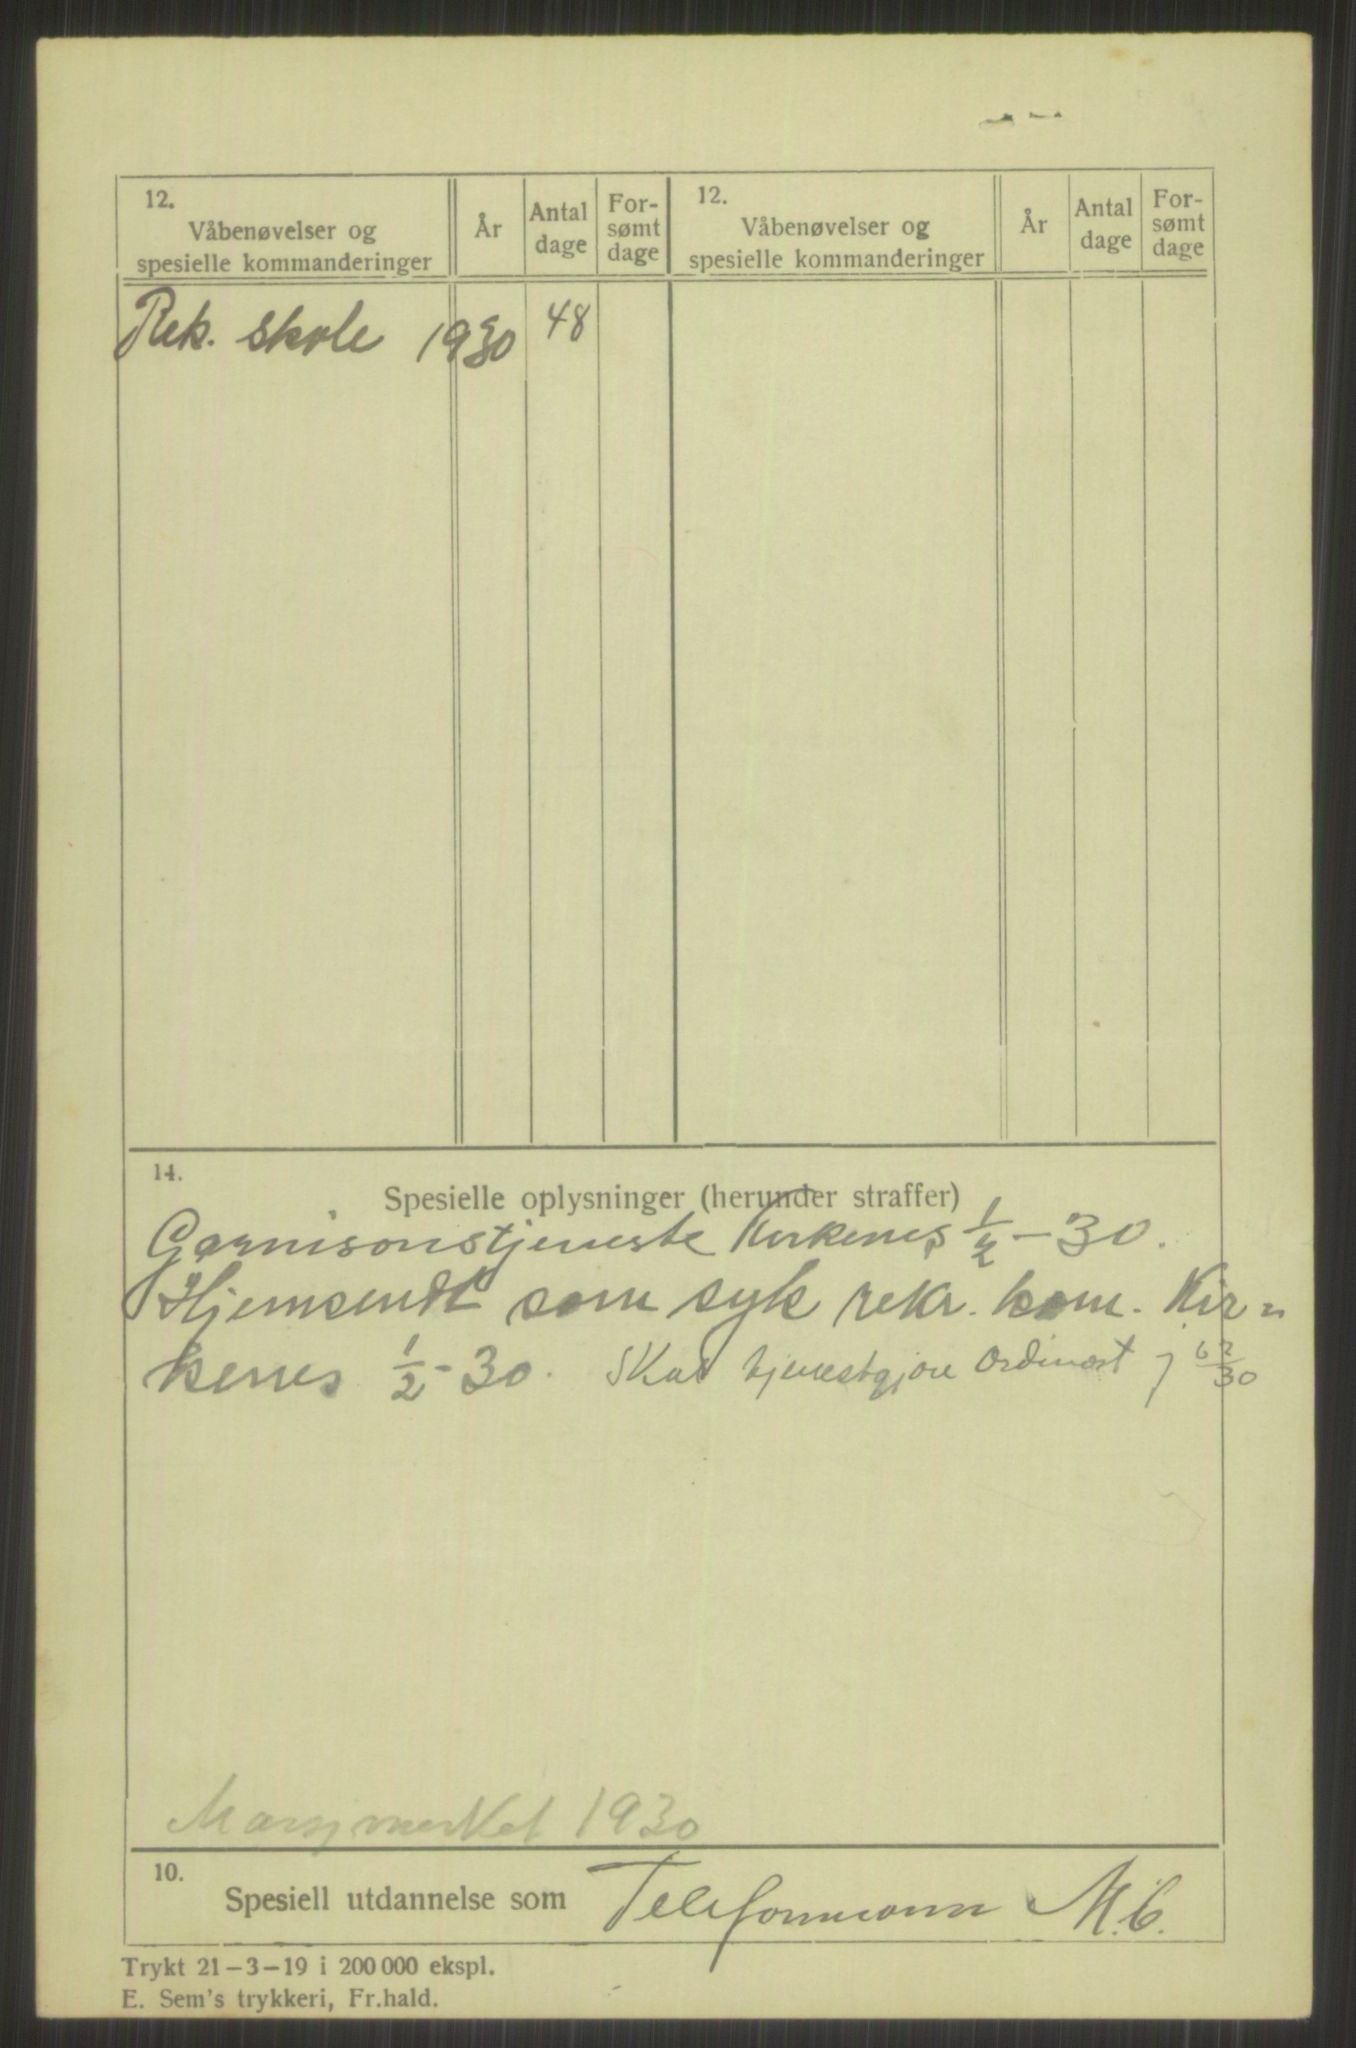 12.
Våbenøvelser og
spesielle kommanderinger
År
Antal
dage
For-
sømt
dage
12.
Våbenøvelser og
spesielle kommanderinger
År
Antal
dage
For-
sømt
dage
Rek. skole 1930 48
14.
Spesielle oplysninger (herunder straffer)
Garnisonstjeneste Kirkenes 1/2 - 30.
Hjemsendt som syk rekr. kom. Kir=
kenes 1/2 - 30. Skal tjenestgjøre ordinært
Marsjmerket 1930
10.
Spesiell utdannelse som Telefonmann M.G.
Trykt 21-3-19 i 200 000 ekspl.
E. Sem's trykkeri, Fr.hald.